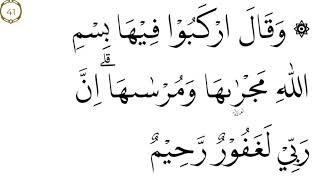 ۞ وَقَالَ ارْكَبُوْا فِيْهَا بِسْمِ
اللّٰهِ مَجْرٰىهَا وَمُرْسٰىهَا ۗاِنَّ
رَبِّيْ لَغَفُوْرٌ رَّحِيْمٌ
41